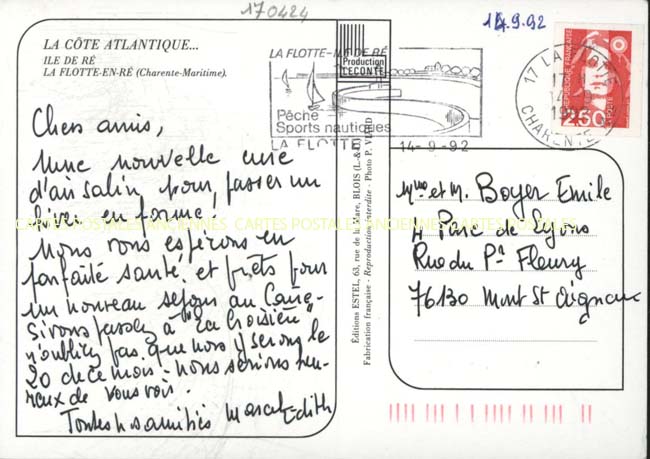 170424
14.9.92
LA CÔTE ATLANTIQUE...
ILE DE RÉ
LA FLOTTE-EN-RÉ (Charente-Maritime).
Production
LECONTE
LA FLOTTE-ILE DE RÉ
Pêche
Sports nautiques
LA FLOTTE
14-9-92
17 LA FLOTTE
CHARENTE
RÉPUBLIQUE FRANÇAISE
2,50
LA POSTE
Chers amis,
Une nouvelle cure
d'air salin, pour passer un
hiver en forme!
Nous vous espérons en
parfaite santé, et prêts pour
un nouveau séjour au
Si vous passez à "La Croisière"
n'oubliez pas que nous y serons le
20 de ce mois. nous serions heu-
reux de vous voir.
Toutes nos amitiés Marcel-Edith
Mme et M. Boyer Emile
4 Parc de
Rue du Pt Fleury
76130 Mont St Aignan
Éditions ESTEL, 63, rue de la Mare, BLOIS (L.-&-C.)
Fabrication française - Reproduction interdite - Photo P. VIARD
CARTES POSTALES ANCIENNES CARTES POSTALES ANCIENNES CARTES POSTALES